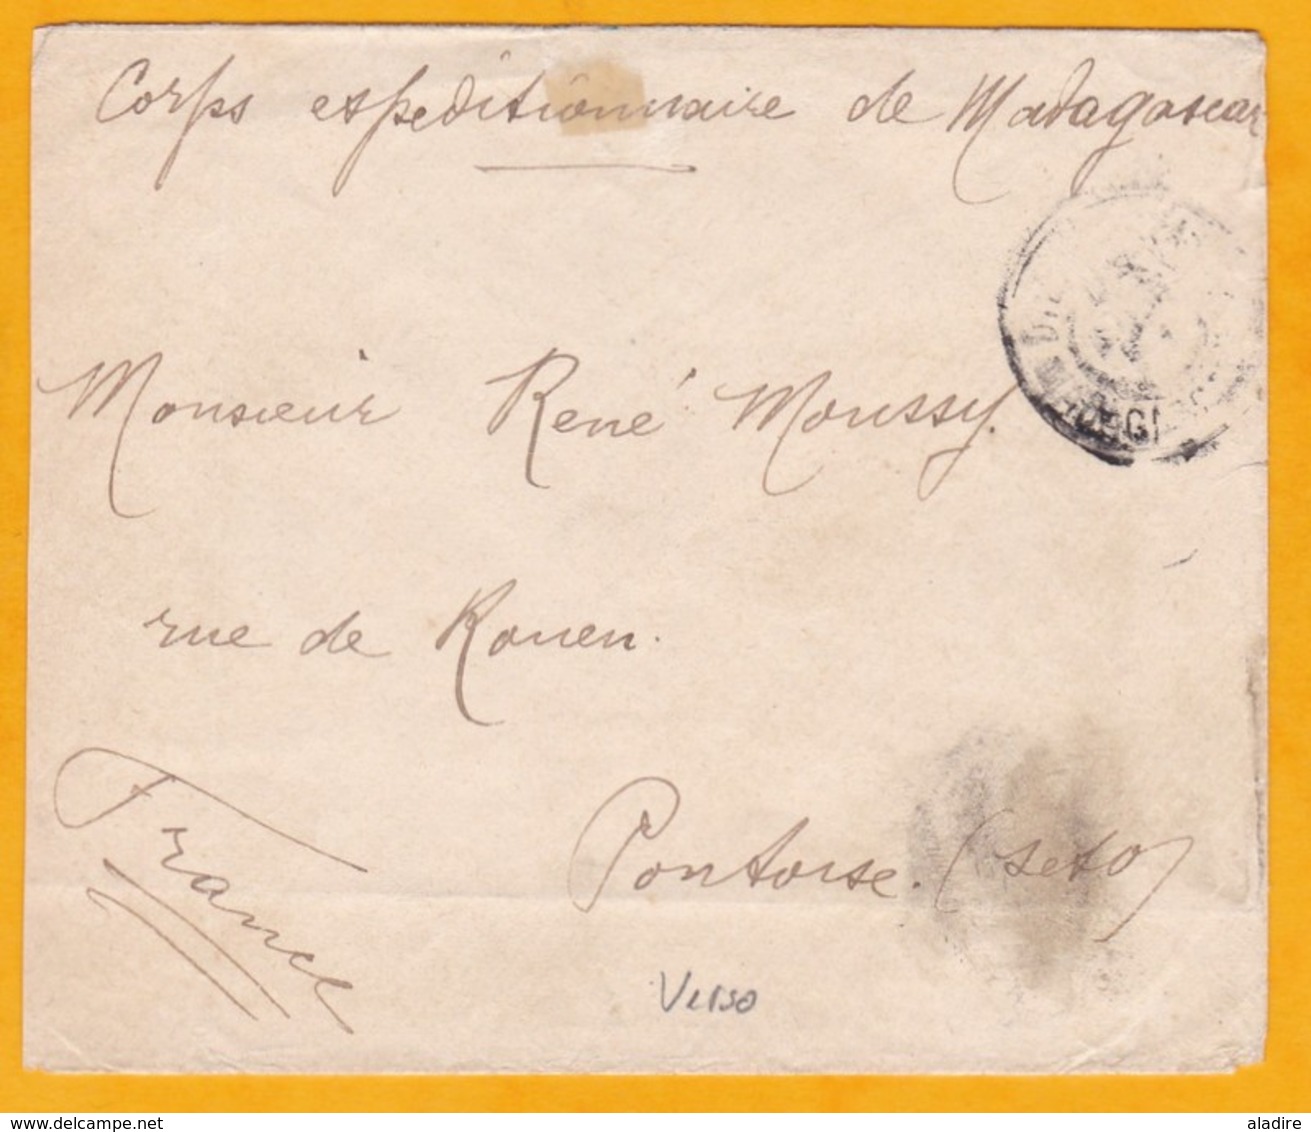 Corps expeditionnaire de Madagascar
Monsieur René Moussy.
rue de Rouen.
France
Pontoise. (Seto)
Verso
delcampe.net
aladire